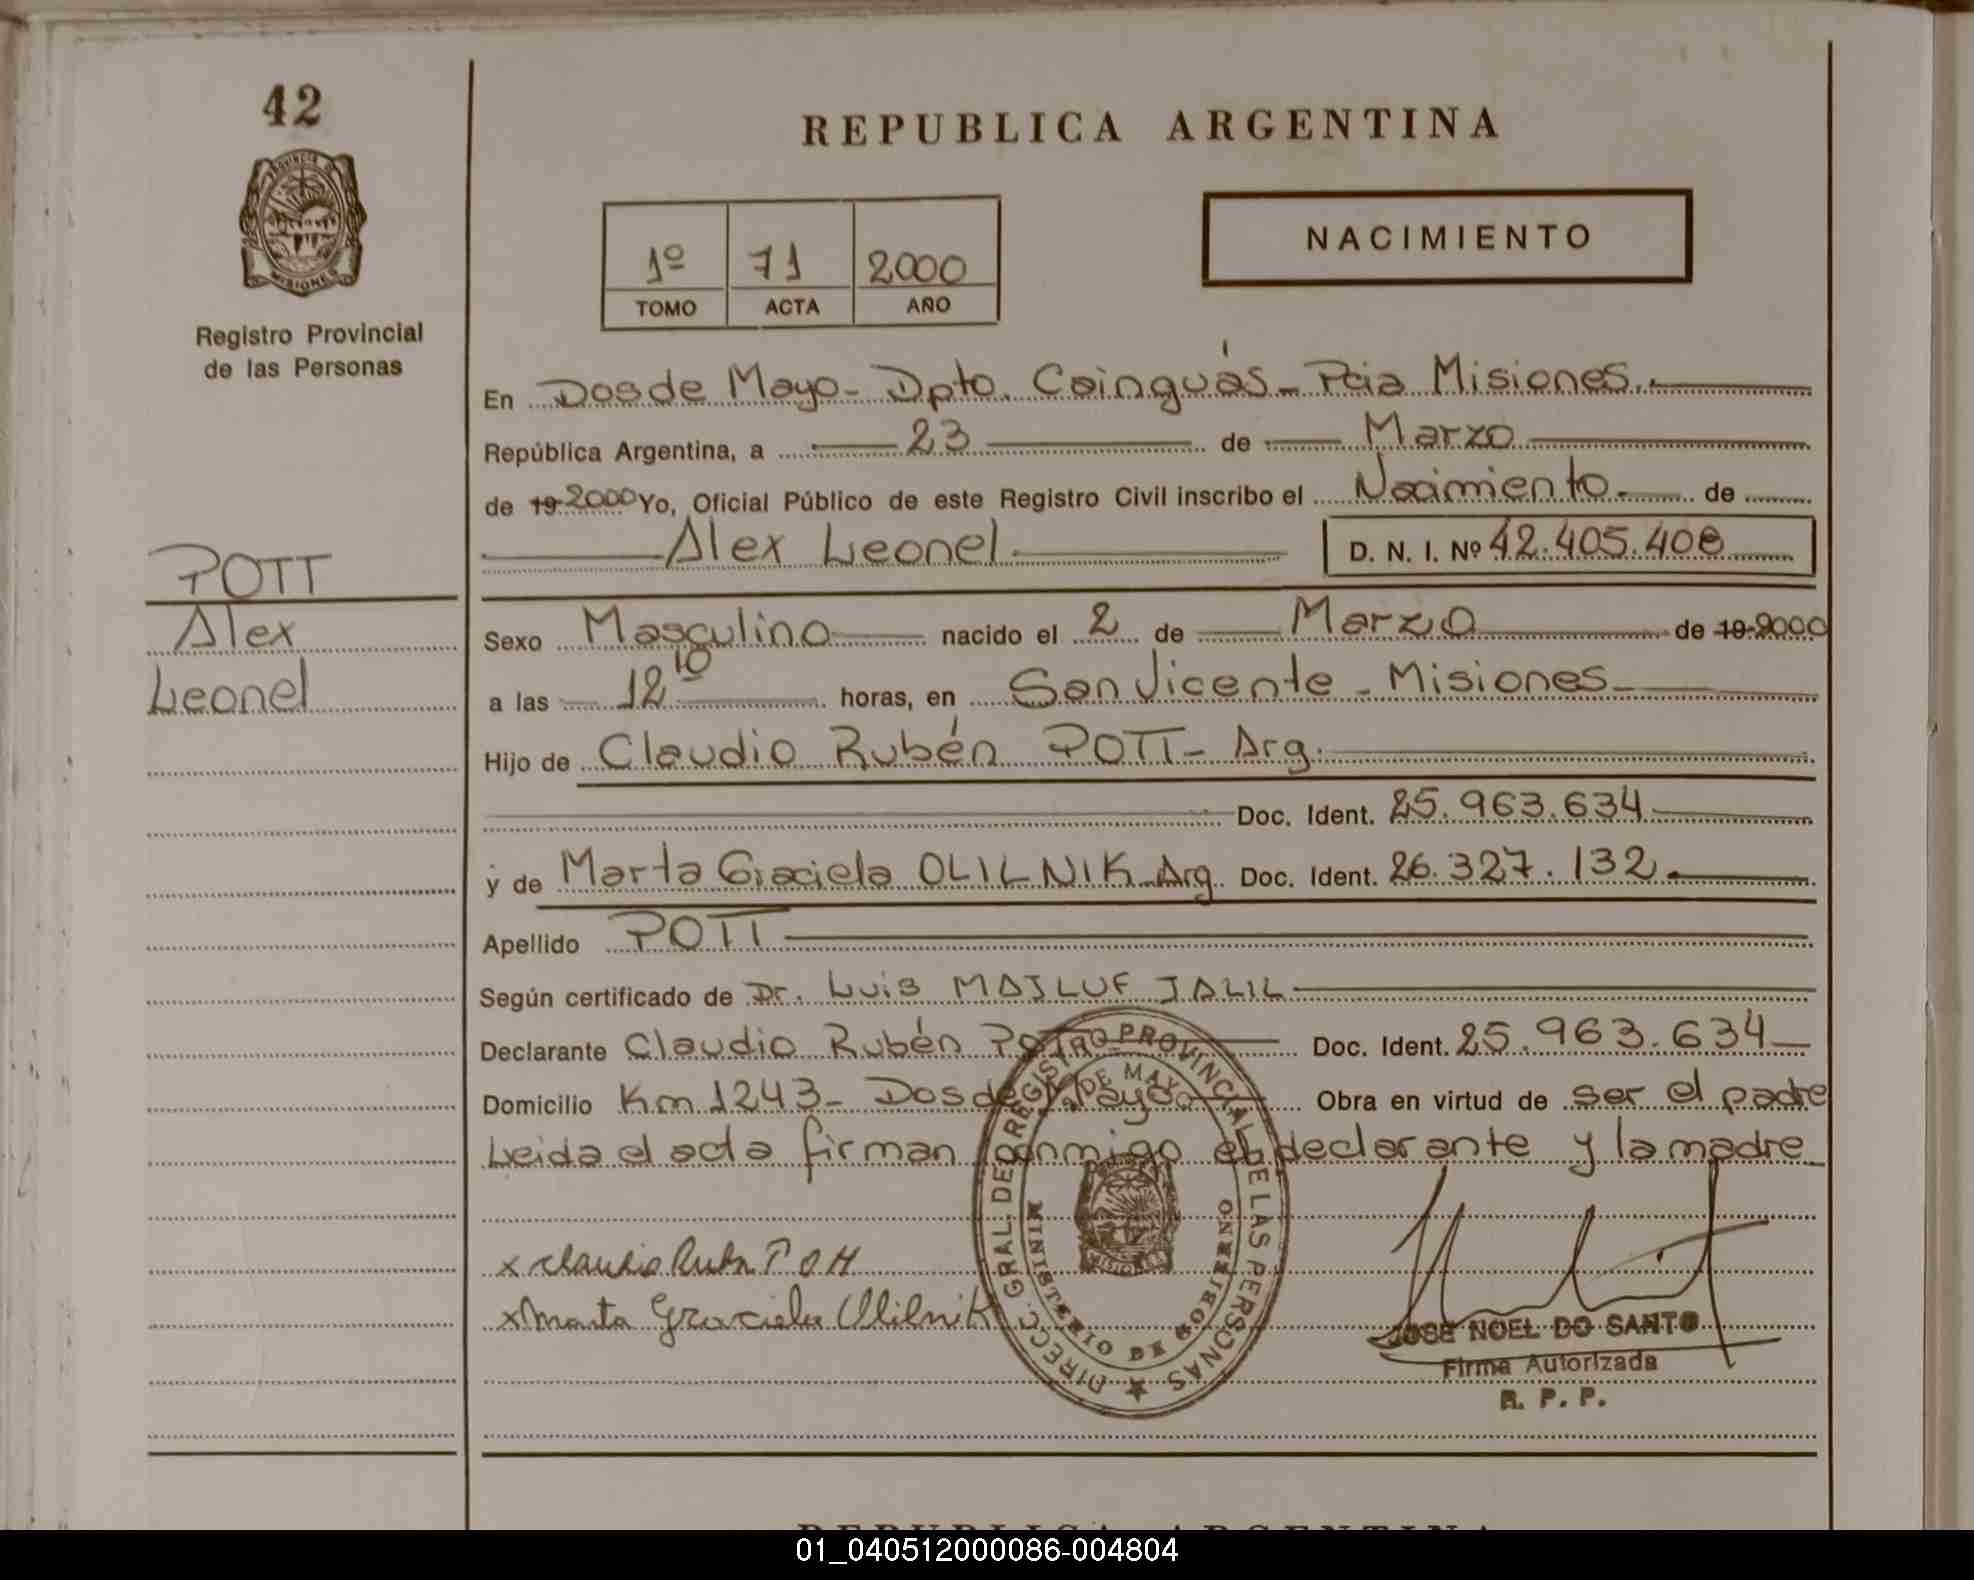 42
PROVINCIA DE
MISIONES
Registro Provincial
de las Personas
POTT
Alex
Leonel
REPUBLICA ARGENTINA
1º 71 2000
TOMO ACTA AÑO
NACIMIENTO
En Dos de Mayo - Dpto. Cainguás - Pcia Misiones.
República Argentina, a 23 de Marzo
de 19 2000 Yo, Oficial Público de este Registro Civil inscribo el Nacimiento de
Alex Leonel D. N. I. Nº 42.405.408
Sexo Masculino nacido el 2 de Marzo de 19 2000
a las 12 10 horas, en San Vicente - Misiones
Hijo de Claudio Rubén POTT - Arg.
Doc. Ident. 25.963.634
y de Marta Graciela OLILNIK Arg. Doc. Ident. 26.327.132
Apellido POTT
Según certificado de Dr. Luis MAJLUF JALIL
Declarante Claudio Rubén POTT Doc. Ident. 25.963.634
Domicilio Km 1243 - Dos de Mayo Obra en virtud de ser el padre
Leida el acta firman conmigo el declarante y la madre
x Claudio Rubn POTT
x Marta Graciela Olilnik
DIRECC. GRAL. DEL REGISTRO PROVINCIAL DE LAS PERSONAS
2 DE MAYO
MINISTERIO DE GOBIERNO
MISIONES
JOSE NOEL DO SANTO
Firma Autorizada
R. P. P.
REPUBLICA ARGENTINA
01_040512000086-004804